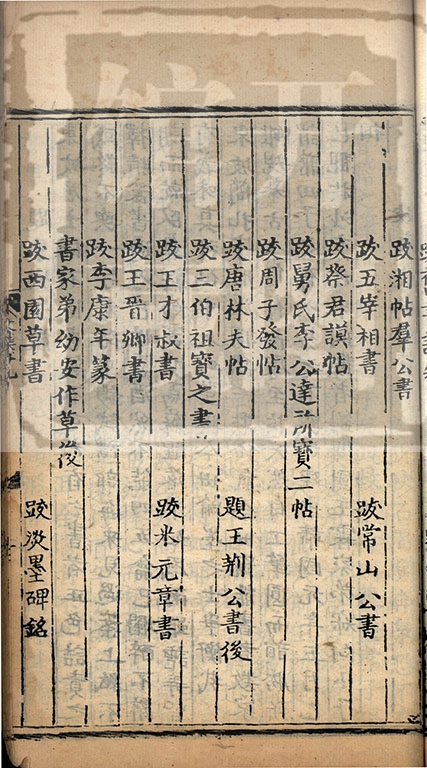 跋湘帖羣公書
跋五宰相書　跋常山公書
跋蔡君謨帖
跋舅氏李公達所寶二帖
跋周子發帖
跋唐林夫帖　題王荆公書後
跋三伯祖寶之書
跋王才叔書　跋米元章書
跋王晉卿書
跋李康年篆
書家弟幼安作草後
跋西園草書　跋淡墨碑銘